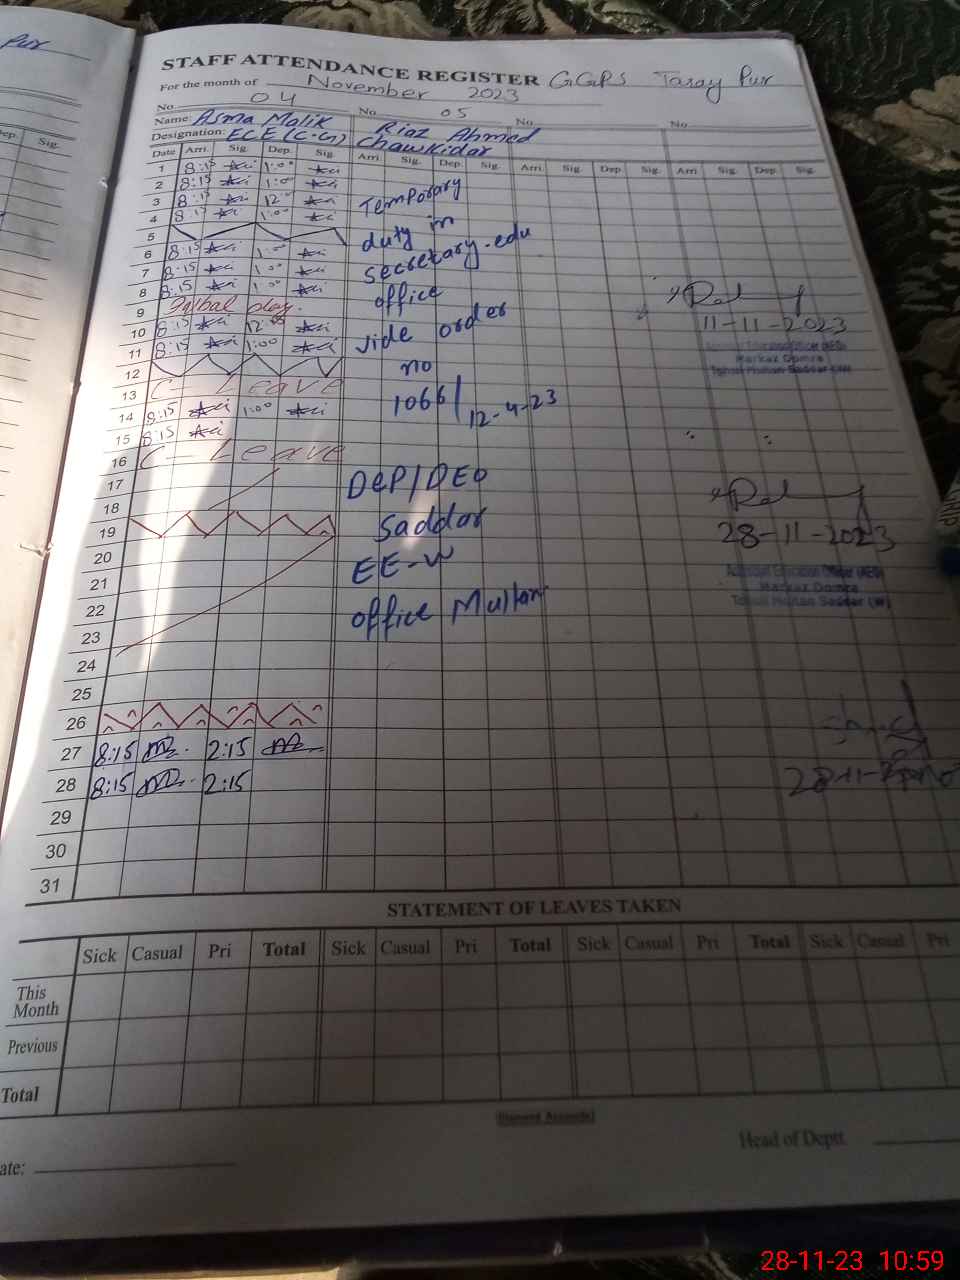 Pur
STAFF ATTENDANCE REGISTER GGPS Taray Pur
For the month of November 2023
No. 04 No. 05 No. No.
Name: Asma Malik Riaz Ahmed
Designation: ECE (C.G) Chawkidar
Dep. Sig.
Date Arri. Sig. Dep. Sig. Arri. Sig. Dep. Sig. Arri. Sig. Dep. Sig. Arri Sig. Dep. Sig.
1 8:15 1:00
2 8:15 1:00 Temporary
3 8:15 12
4 8:15 1:00 duty in
5
6 8:15 1:00 secretary.edu
7 8:15 1:00
8 8:15 1:00 office
9 day.
10 8:15 12 vide order
11 8:15 1:00 11-11-2023
12 no
Markaz Domra
13 C- Leave
14 8:15 1:00 1066/12-4-23
15 8:15
16 C- Leave
17 DEP/DEO
18
19 Saddar
28-11-2023
20
21 EE-W
Assistant Education Officer (AEO)
Markaz Domra
Tehsil Multan Saddar (W)
22 office Multan
23
24
25
26
27 8:15 2:15
28 8:15 2:15
29
30
31
STATEMENT OF LEAVES TAKEN
Sick Casual Pri Total Sick Casual Pri Total Sick Casual Pri Total Sick Casual Pri
This Month
Previous
Total
Head of Deptt.
ate:
28-11-23 10:59